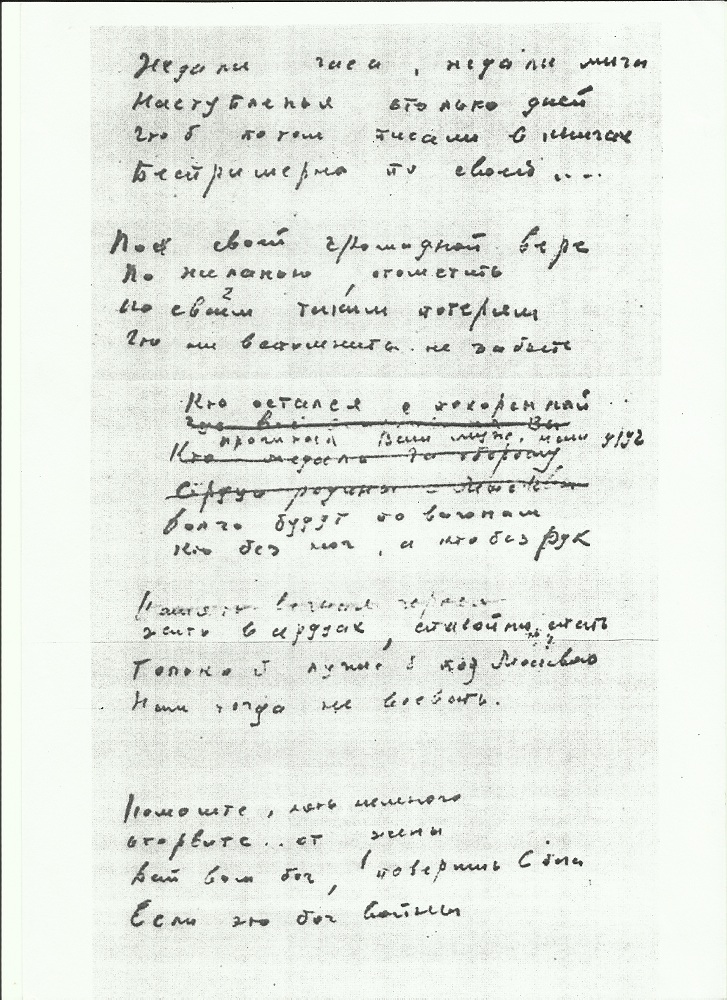 Не дали часа, не дали мига
Наступленья столько дней
Что б потом писали в книгах
Беспримерно по своей ....
По своей громадной вере
По желанью, отомстить
По своим таким потерям
Что ни вспомнить не забыть
Кто остался с похоронкой
Кто прочитал Ваш муж,
Кто медаль За оборону
Сердце родины - Москв
Долго будут по вагонам
Кто без ног, а кто без рук
Память вечная героям
жить в сердцах, спокойно спать
Только б лучше б под Москвою
Нам тогда не воевать.
Помогите, хоть немного
оторвите .. от жены
Дай вам бог, поверишь
Если это бог войны